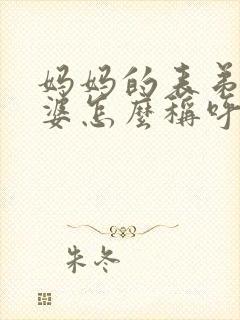 妈妈的表弟
婆怎麼稱呼
朱冬